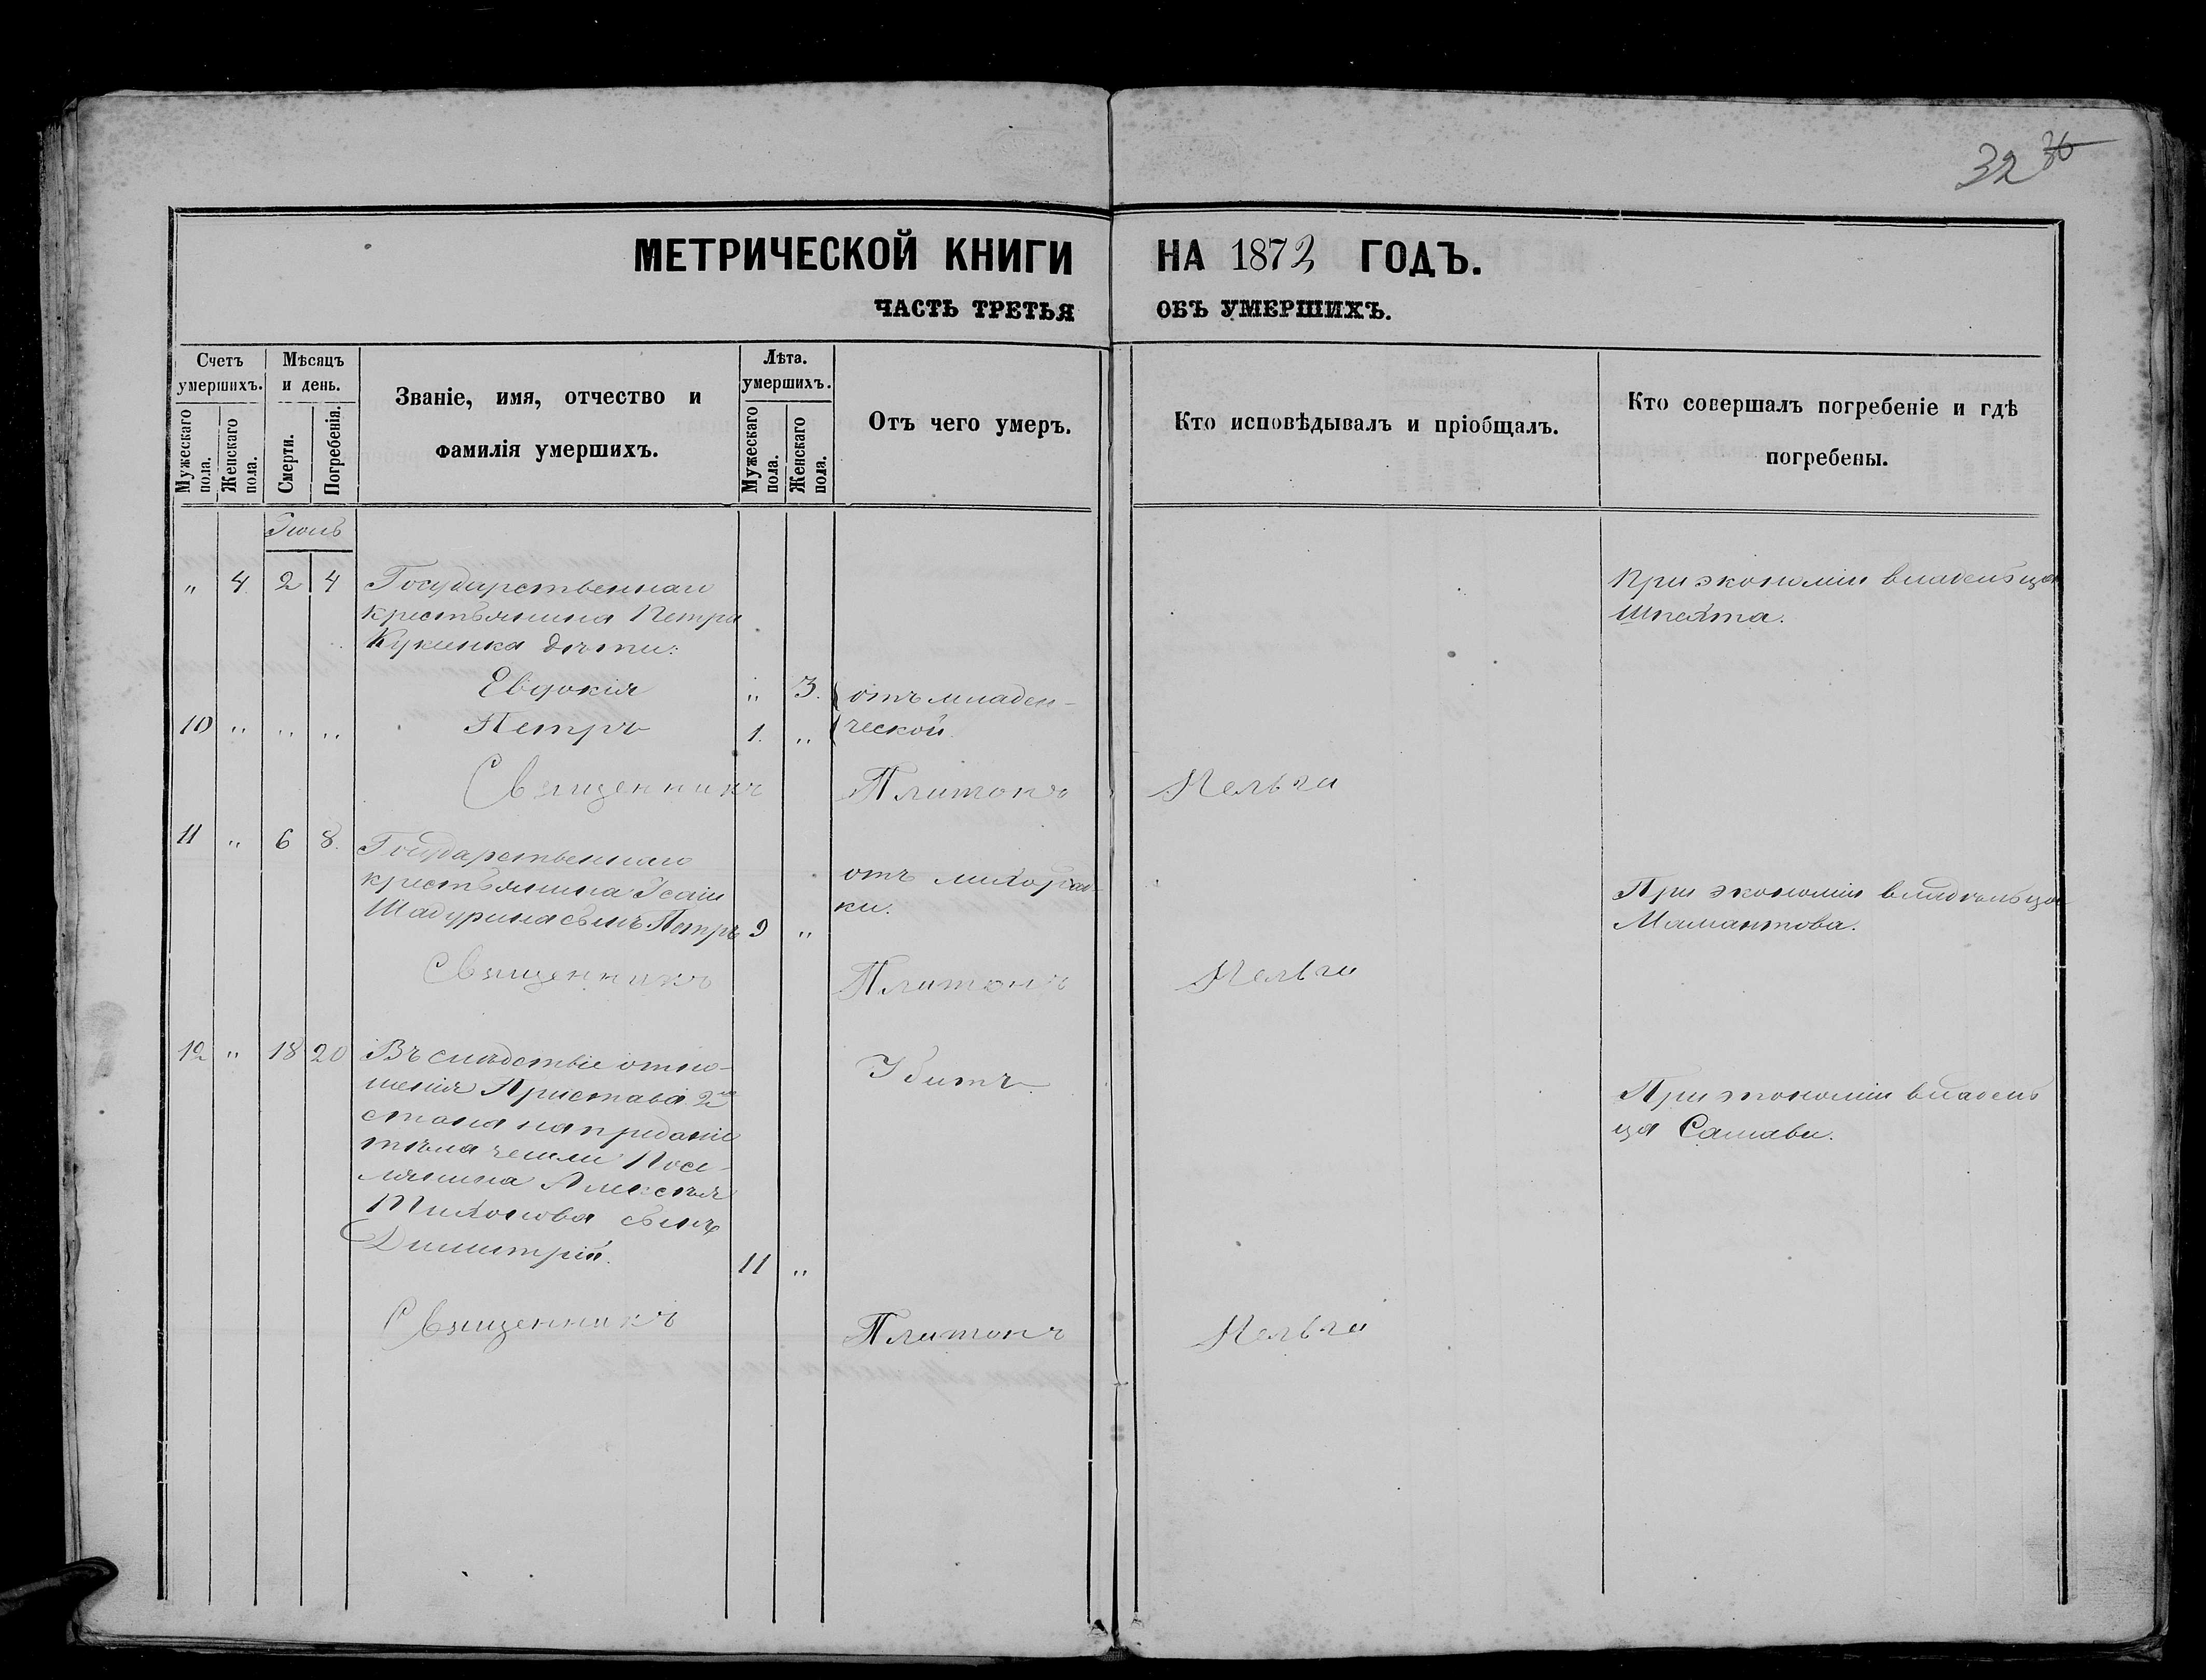 32 36
МЕТРИЧЕСКОЙ КНИГИ НА 1872 ГОДЪ.
ЧАСТЬ ТРЕТЬЯ ОБЪ УМЕРШИХЪ.
Счетъ умершихъ.
Мужескаго пола.
Женскаго пола.
Мѣсяцъ и день.
Смерти.
Погребенія.
Званіе, имя, отчество и
фамилія умершихъ.
Лѣта. умершихъ.
Мужескаго пола.
Женскаго пола.
Отъ чего умеръ.
Кто исповѣдывалъ и пріобщалъ.
Кто совершалъ погребеніе и гдѣ
погребены.
" 4. 2 4 Государственнаго
крестьянина Петра
дѣти:
Евдокія " 3. отъ младен-
10 " " " Петръ 1. " ческой.
При экономіи владельца
Шпехта.
Священникъ Платонъ
11 " 6 8. Государственнаго
крестьянина Исаіи
сынъ Петръ 9 "
отъ лихорад-
ки.
При экономіи владѣльца
Мамантова.
Священникъ Платонъ
12 " 18 20 Въ слѣдствіе отно-
шенія Пристава 2го
стана на преданіе
тѣла земли Посе-
лянина Алексѣя
Тихонова сынъ
Димитрій. 11 "
Убитъ
При экономіи владель
ца
Священникъ Платонъ